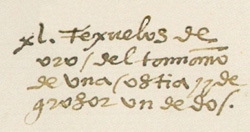 xl. Texuelos de
oro / del tamaño
de una ostia / de
grosor un dedos.